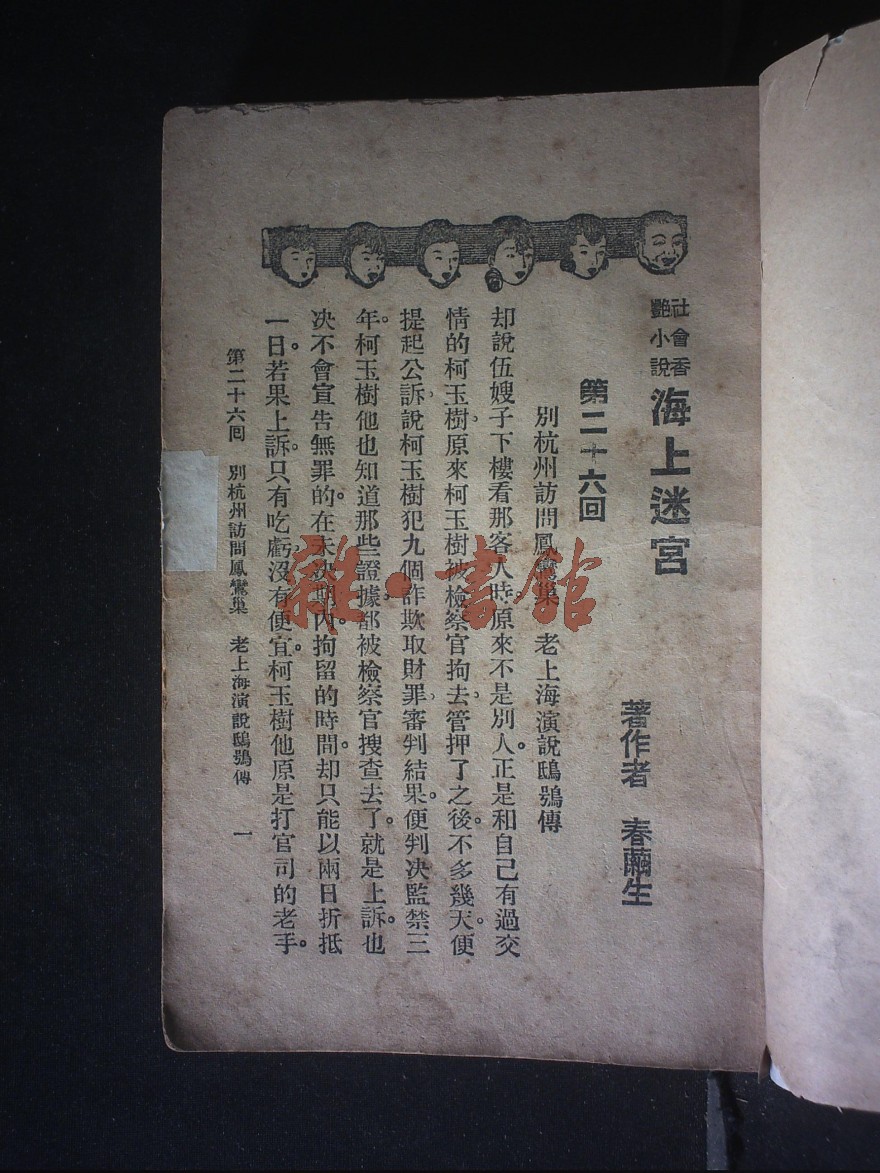 社會香艷小說 海上迷宮
著作者 春繭生
第二十六回
別杭州訪問鳳鸞巢 老上海演說鴟鴞傳
却說伍嫂子下樓看那客人時原來不是別人。正是和自己有過交
情的柯玉樹。原來柯玉樹被檢察官拘去。管押了之後。不多幾天。便
提起公訴。說柯玉樹犯九個詐欺取財罪。審判結果。便判决監禁三
年。柯玉樹他也知道那些證據都被檢察官搜查去了。就是上訴。也
决不會宣告無罪的。在未决期內。拘留的時間。却只能以兩日折抵
一日。若果上訴。只有吃虧沒有便宜。柯玉樹他原是打官司的老手。
第二十六回 別杭州訪問鳳鸞巢 老上海演說鴟鴞傳 一
雜·書館